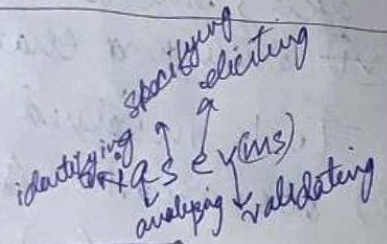 specifying
eliciting
identifying
i a s e v(ms)
analysing validating